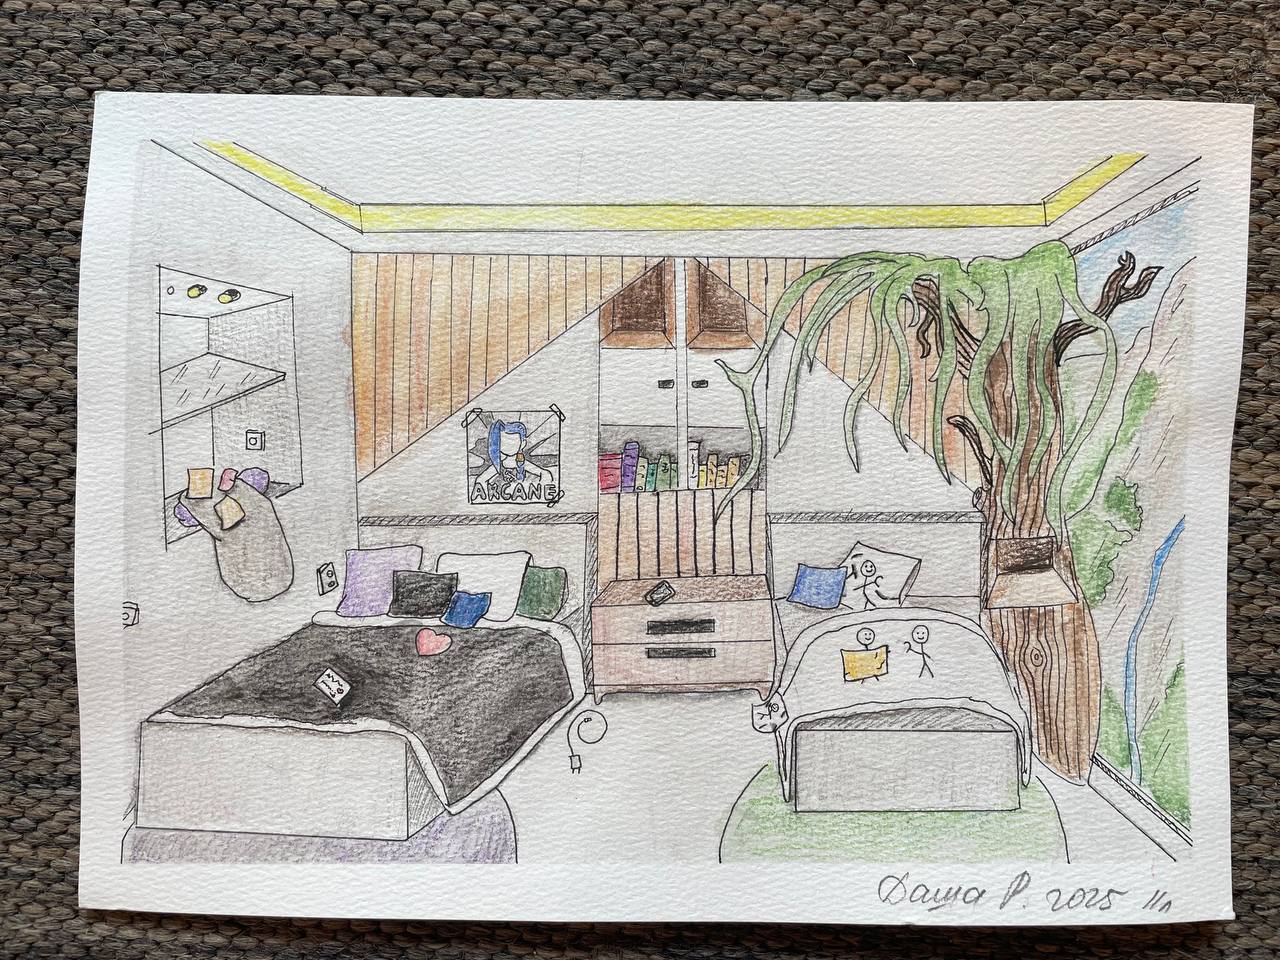 ARCANE
Даша Р. 2025 11л